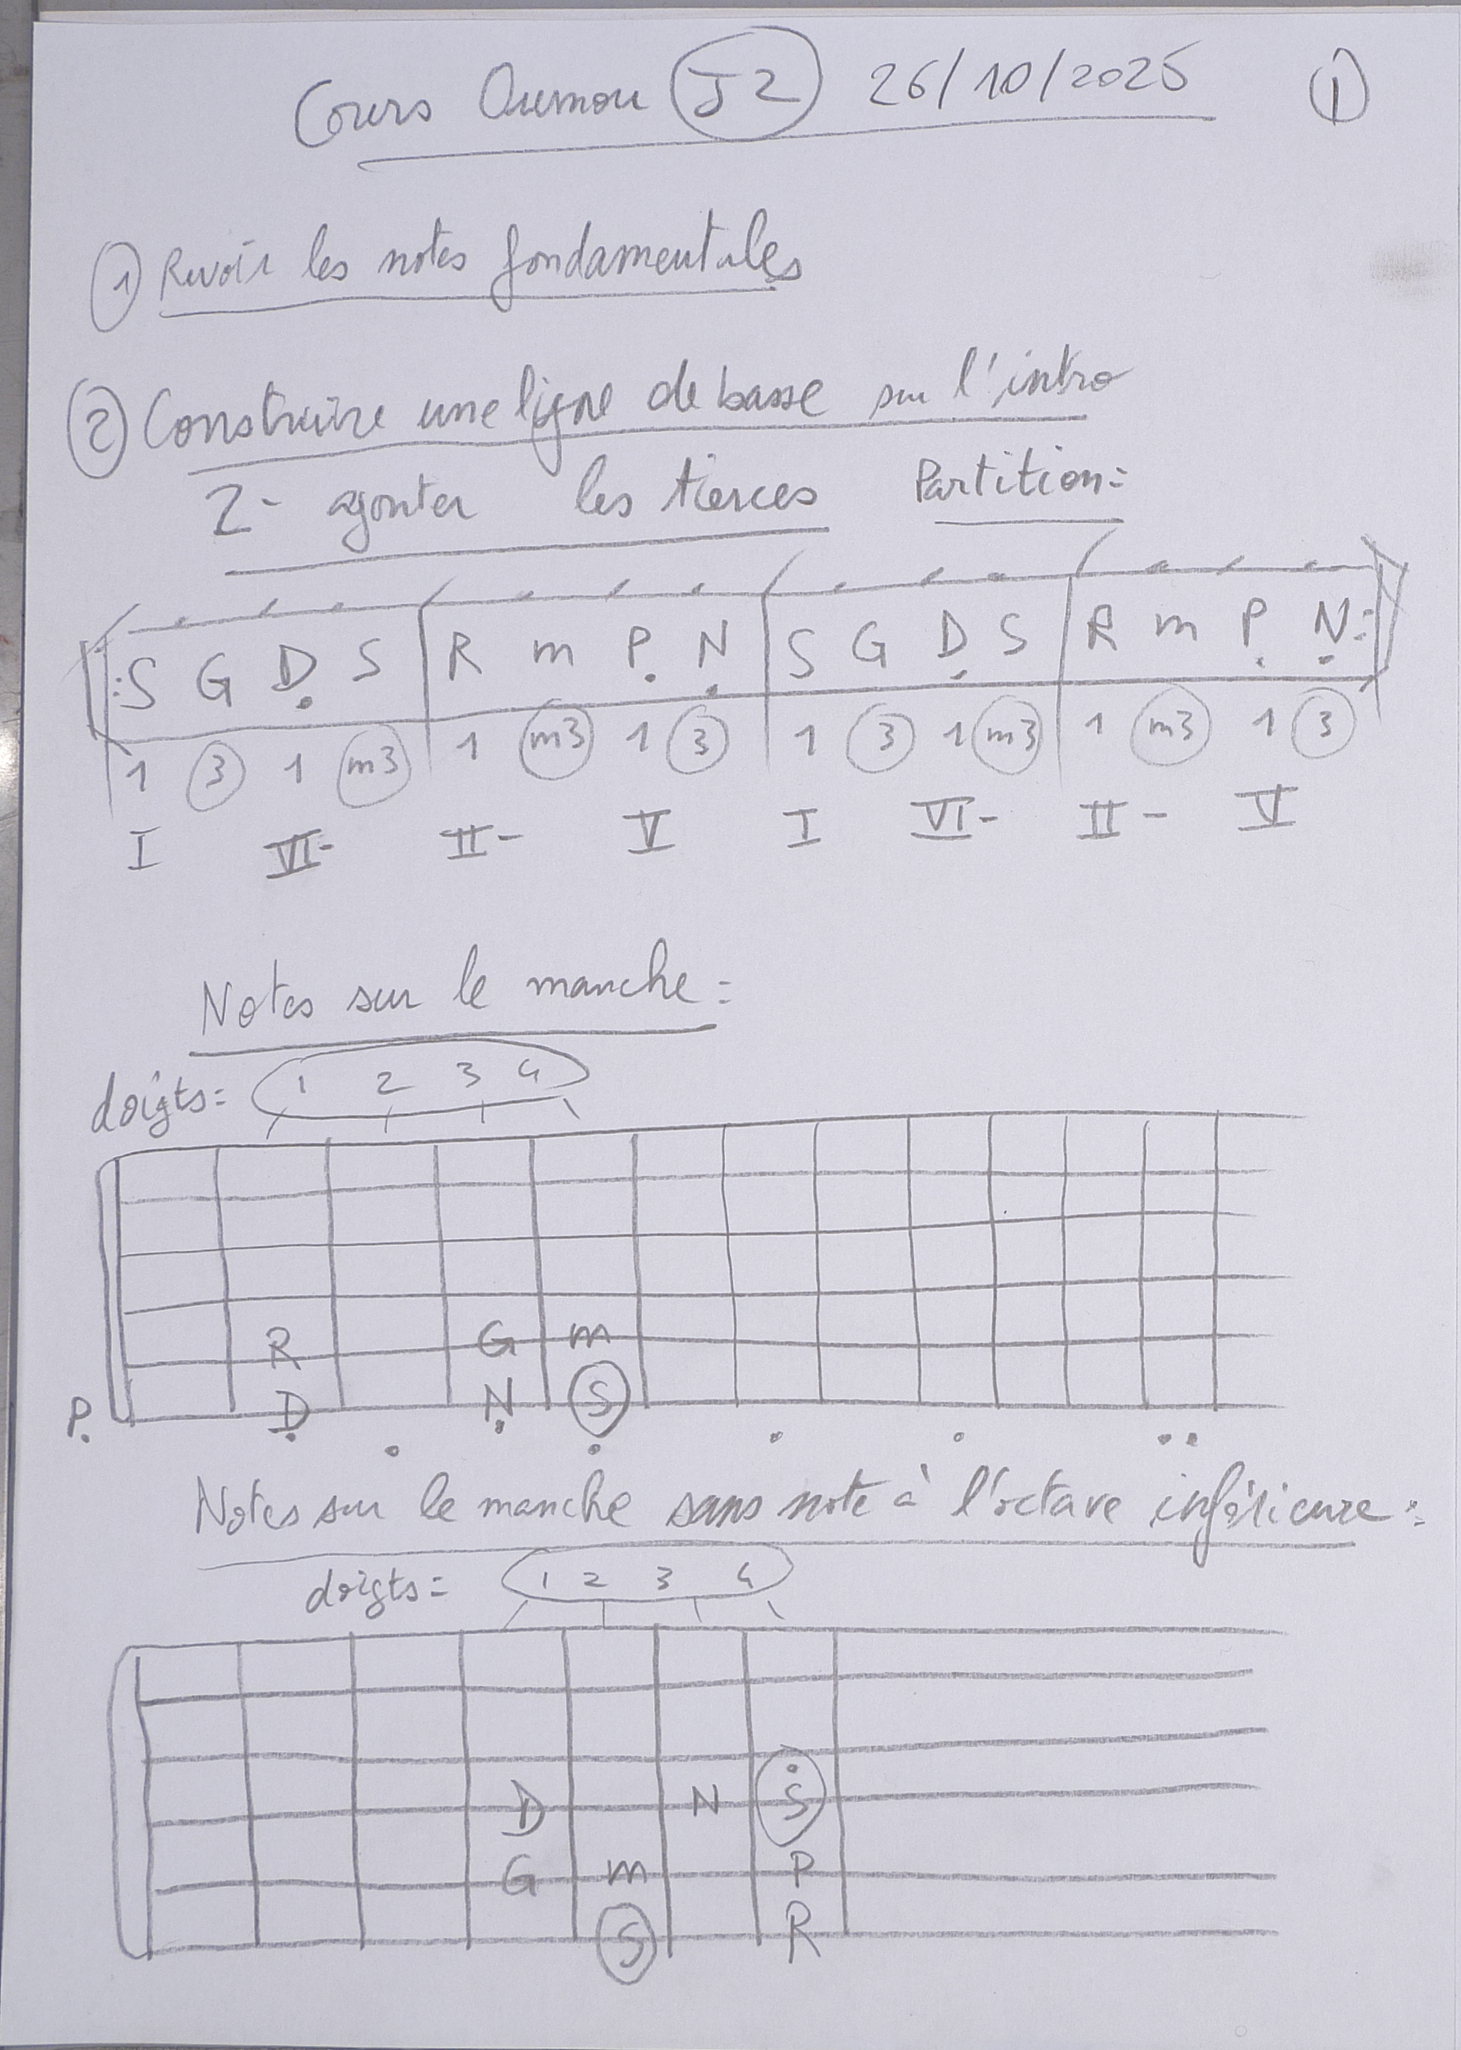 Cours Oumou J2 26/10/2025 1
1 Revoir les notes fondamentales
2 Construire une ligne de basse sur l'intro
2- ajouter les tierces Partition:
:S G Ḍ S R m Ṗ Ṇ S G Ḍ S R m P̣ Ṇ:
1 3 1 m3 1 m3 1 3 1 3 1 m3 1 m3 1 3
I VI- II- V I VI- II- V
Notes sur le manche:
doigts: 1 2 3 4
R G m
P̣ Ḍ Ṇ S
Notes sur le manche sans note à l'octave inférieure:
doigts: 1 2 3 4
D N Ṡ
G m P
S R